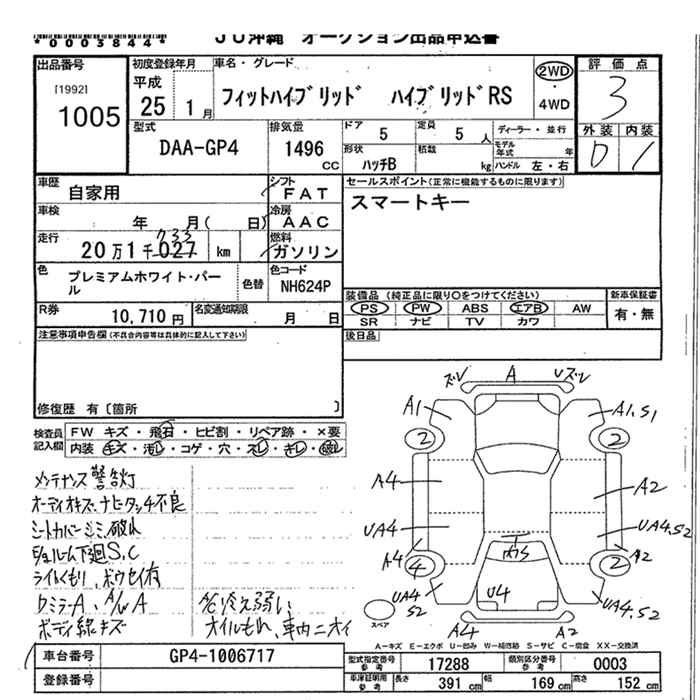 *0003844*
JU沖縄 オークション出品申込書
出品番号
[1992]
1005
初度登録年月
平成
25 1月
車名・グレード
フィットハイブリッド ハイブリッドRS
2WD
・
4WD
評価点
3
外装 内装
D 1
型式
DAA-GP4
排気量
1496
CC
ドア 5
定員 5 人
ディーラー・並行
形状
ハッチB
積載
kg
モデル年式 年
ハンドル 左・右
車歴
自家用
シフト
FAT
車検
年 月( 日)
冷房
AAC
走行
733
20万1千027 km
燃料
ガソリン
色
プレミアムホワイト・パール
色替
色コード
NH624P
R券
10,710円
名変通知期限
月 日
セールスポイント(正常に機能するものに限ります)
スマートキー
装備品(純正品に限り○をつけてください)
PS PW ABS エアB AW
SR ナビ TV カワ
新車保証書
有・無
後日品
注意事項申告欄(不具合内容等は具体的に記入して下さい)
修復歴 有〔箇所 〕
検査員記入欄
FW キズ・飛石・ヒビ割・リペア跡・×要
内装・キズ・汚レ・コゲ・穴・スレ・キレ・破レ
メンテナンス警告灯
オーディオキズ、ナビタッチ不良
シートカバーシミ、破れ
S,C
ライトくもり、ボウセイ有
A/W A
ボディ線キズ
A/C冷え弱い
オイルもれ、車内ニオイ
ズレ A Uズレ
A1 A1,S1
2 2
A4 A2
UA4 UA4,S2
A4 A2
4 2
UA4 S2
U4
UA4,S2
A4 A2
スペア
A-キズ E-エクボ U-凹み W-補修跡 S-サビ C-腐食 XX-交換済
車台番号 GP4-1006717
登録番号
型式指定番号参考 17288
類別区分番号参考 0003
車庫証明用参考 長さ 391 cm 幅 169 cm 高さ 152 cm